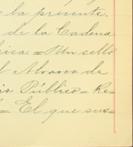 la presente
de la Cadena
rica = Un sello
l. Alvarez de
io Público = Re-
= El que sus-